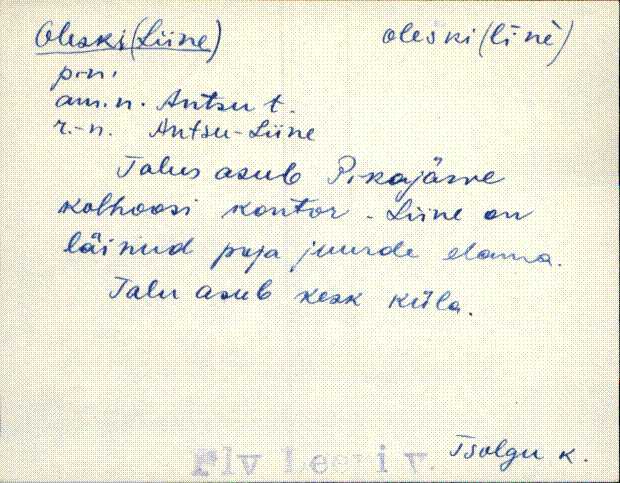 Oleski (Liine) oleski (līnè)
p.-n.
am. n. Antsu t.
r.-n. Antsu-Liine
Talus asub Pikajärve
kolhoosi kontor. Liine on
läinud poja juurde elama.
Talu asub kesk küla.
Plv Leevi v. Tsolgu k.